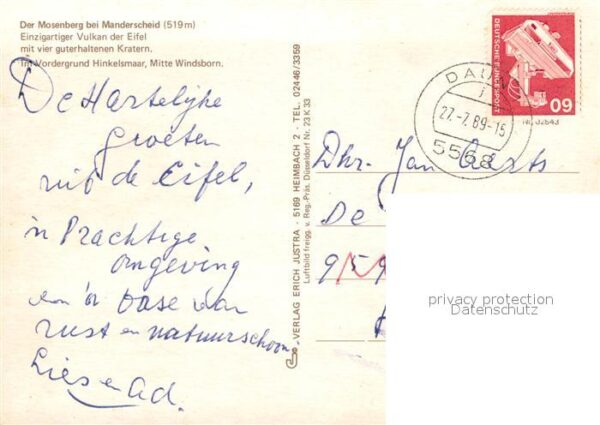 Der Mosenberg bei Manderscheid (519m)
Einzigartiger Vulkan der Eifel
mit vier guterhaltenen Kratern.
Im Vordergrund Hinkelsmaar, Mitte Windsborn.
De Hartelijke
groeten
uit de Eifel,
in Prachtige
omgeving
een
oase van
rust en natuurschoon.
Lies en Ad.
VERLAG ERICH JUSTRA · 5169 HEIMBACH 2 · TEL. 02446/3359
Luftbild freigg. v. Reg.-Präs. Düsseldorf Nr. 23 K 33
DEUTSCHE BUNDESPOST
60
DAUN
27.-7.89-15
5568
Dhr. Jan
De
privacy protection
Datenschutz